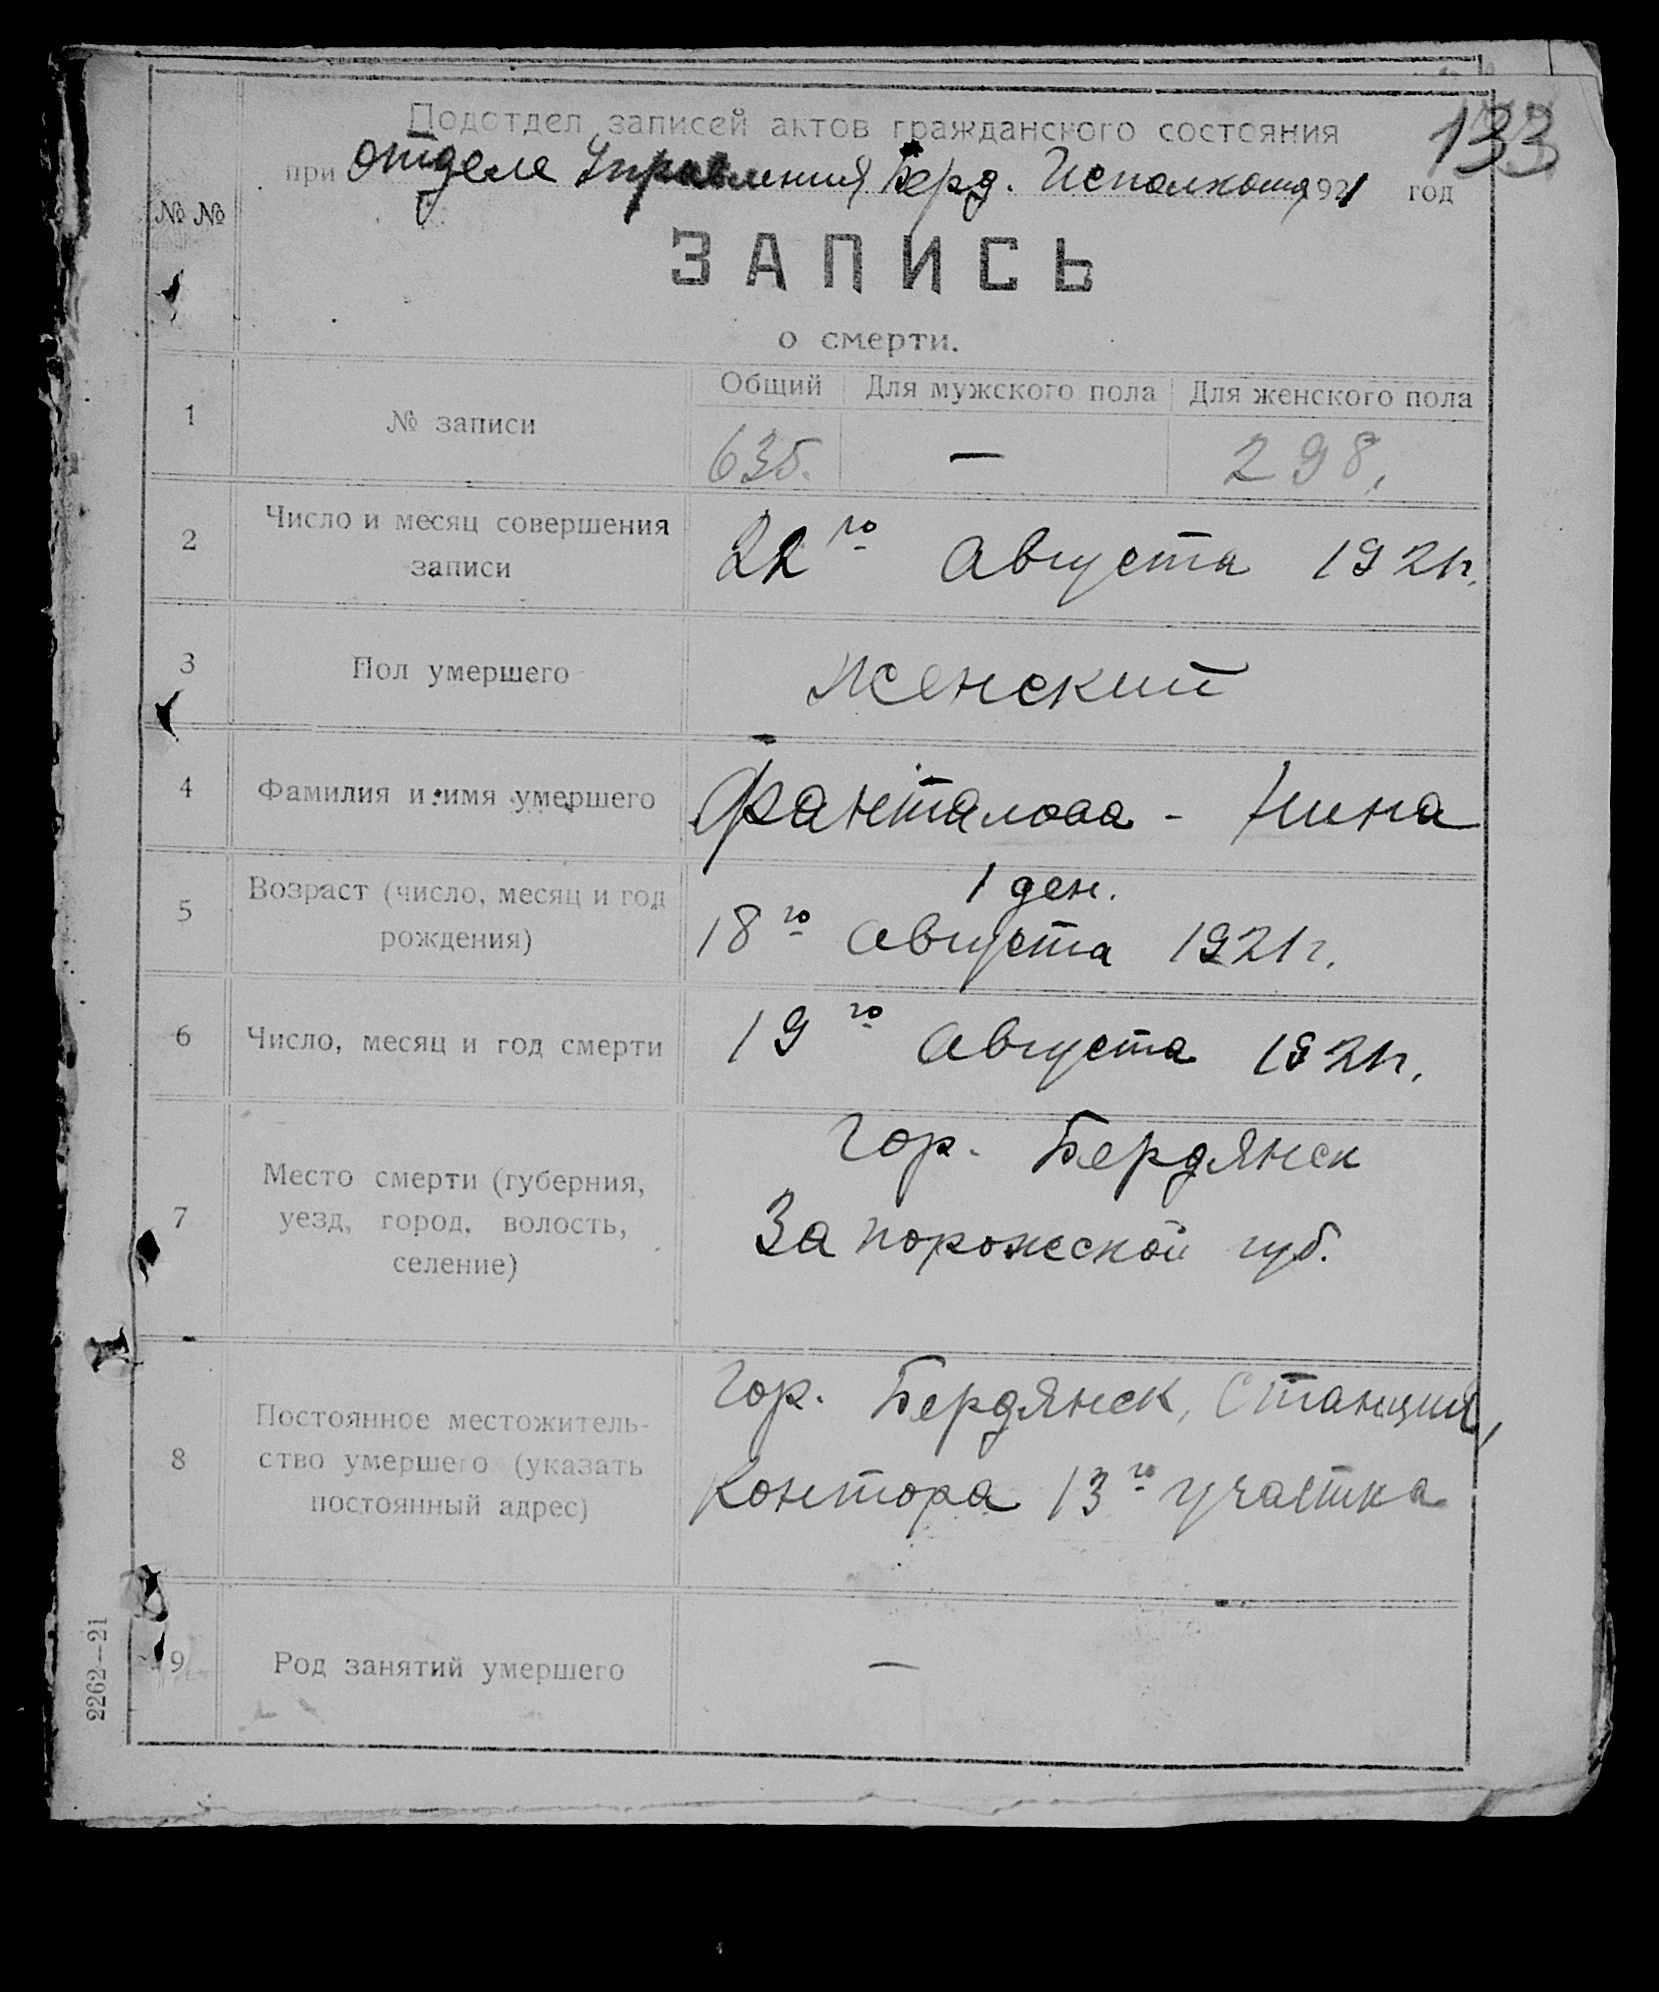 133
Подотдел записей актов гражданского состояния
при отделе Управления Берд. Исполкома 1921 год
№ №
ЗАПИСЬ
о смерти.
1 № записи Общий Для мужского пола Для женского пола
635. — 298.
2 Число и месяц совершения записи
22го Августа 1921г.
3 Пол умершего Женский
4 Фамилия и имя умершего Фанталова - Нина
5 Возраст (число, месяц и год рождения)
1 ден.
18го Августа 1921г.
6 Число, месяц и год смерти 19го Августа 1921г.
7 Место смерти (губерния, уезд, город, волость, селение)
Гор. Бердянск
Запорожской губ.
8 Постоянное местожитель-
ство умершего (указать
постоянный адрес)
Гор. Бердянск, Станция,
Контора 13го участка
9 Род занятий умершего —
2262—21